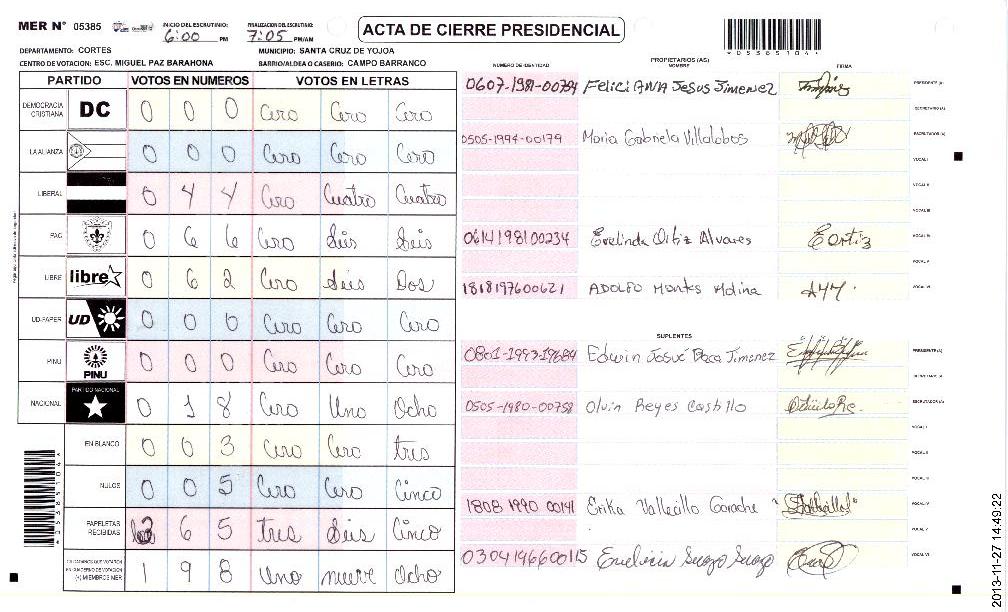 MER N° 05385 INICIO DEL ESCRUTINIO: 6:00 PM FINALIZACION DEL ESCRUTINIO: 7:05 PM/AM
ACTA DE CIERRE PRESIDENCIAL
053851041
DEPARTAMENTO: CORTES MUNICIPIO: SANTA CRUZ DE YOJOA
CENTRO DE VOTACION: ESC. MIGUEL PAZ BARAHONA BARRIO/ALDEA O CASERIO: CAMPO BARRANCO
PARTIDO VOTOS EN NUMEROS VOTOS EN LETRAS
DEMOCRACIA CRISTIANA DC 0 0 0 Cero Cero Cero
LA ALIANZA 0 0 0 Cero Cero Cero
LIBERAL 0 4 4 Cero Cuatro Cuatro
PAC 0 6 6 Cero Seis Seis
LIBRE libre 0 6 2 Cero Seis Dos
UD-FAPER UD 0 0 0 Cero Cero Cero
PINU PINU 0 0 0 Cero Cero Cero
NACIONAL PARTIDO NACIONAL 0 1 8 Cero Uno Ocho
EN BLANCO 0 0 3 Cero Cero tres
NULOS 0 0 5 Cero Cero Cinco
PAPELETAS RECIBIDAS 3 6 5 tres Seis Cinco
CIUDADANOS QUE VOTARON EN CUADERNO DE VOTACION (+) MIEMBROS MER 1 9 8 Uno nueve Ocho
NUMERO DE IDENTIDAD PROPIETARIOS (AS) NOMBRE FIRMA
0607-1981-00784 FeliciANA Jesus Jimenez PRESIDENTE (A)
SECRETARIO (A)
0505-1994-00179 Maria Gabriela Villalobos ESCRUTADOR (A)
VOCAL I
VOCAL II
VOCAL III
0614198100234 Evelinda Ortiz Alvares E ortiz VOCAL IV
VOCAL V
1818197600621 ADOLFO Montes Molina VOCAL VI
SUPLENTES
0801-1993-19684 Edwin Josué Baca Jimenez PRESIDENTE (A)
SECRETARIO (A)
0505-1980-00758 Olvin Reyes Castillo ESCRUTADOR (A)
VOCAL I
VOCAL II
VOCAL III
1808 1990 00141 Erika Vallecillo VOCAL IV
VOCAL V
0304196600115 Suazo Suazo VOCAL VI
2013-11-27 14:49:22